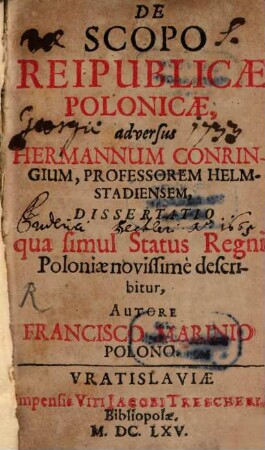 DE
SCOPO
REIPUBLICÆ
POLONICÆ,
adversus 1733
HERMANNUM CONRIN-
GIUM, PROFESSOREM HELM-
STADIENSEM,
DISSERTATIO
qua simul Status Regni
Poloniæ novissimè descri-
bitur,
R
AUTORE
FRANCISCO MARINIO
POLONO.
VRATISLAVIÆ
Impensis VITI JACOBI TRESCHERI,
Bibliopolæ,
M. DC. LXV.